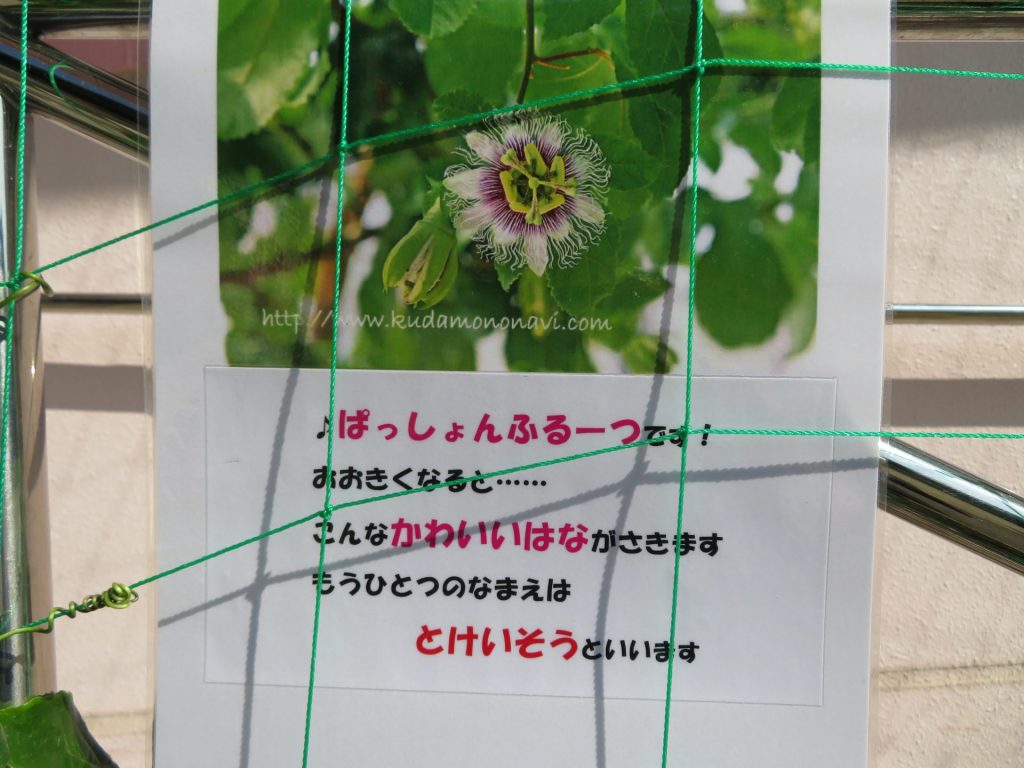 http://www.kudamononavi.com
♪ぱっしょんふるーつです！
おおきくなると……
こんなかわいいはながさきます
もうひとつのなまえは
とけいそうといいます